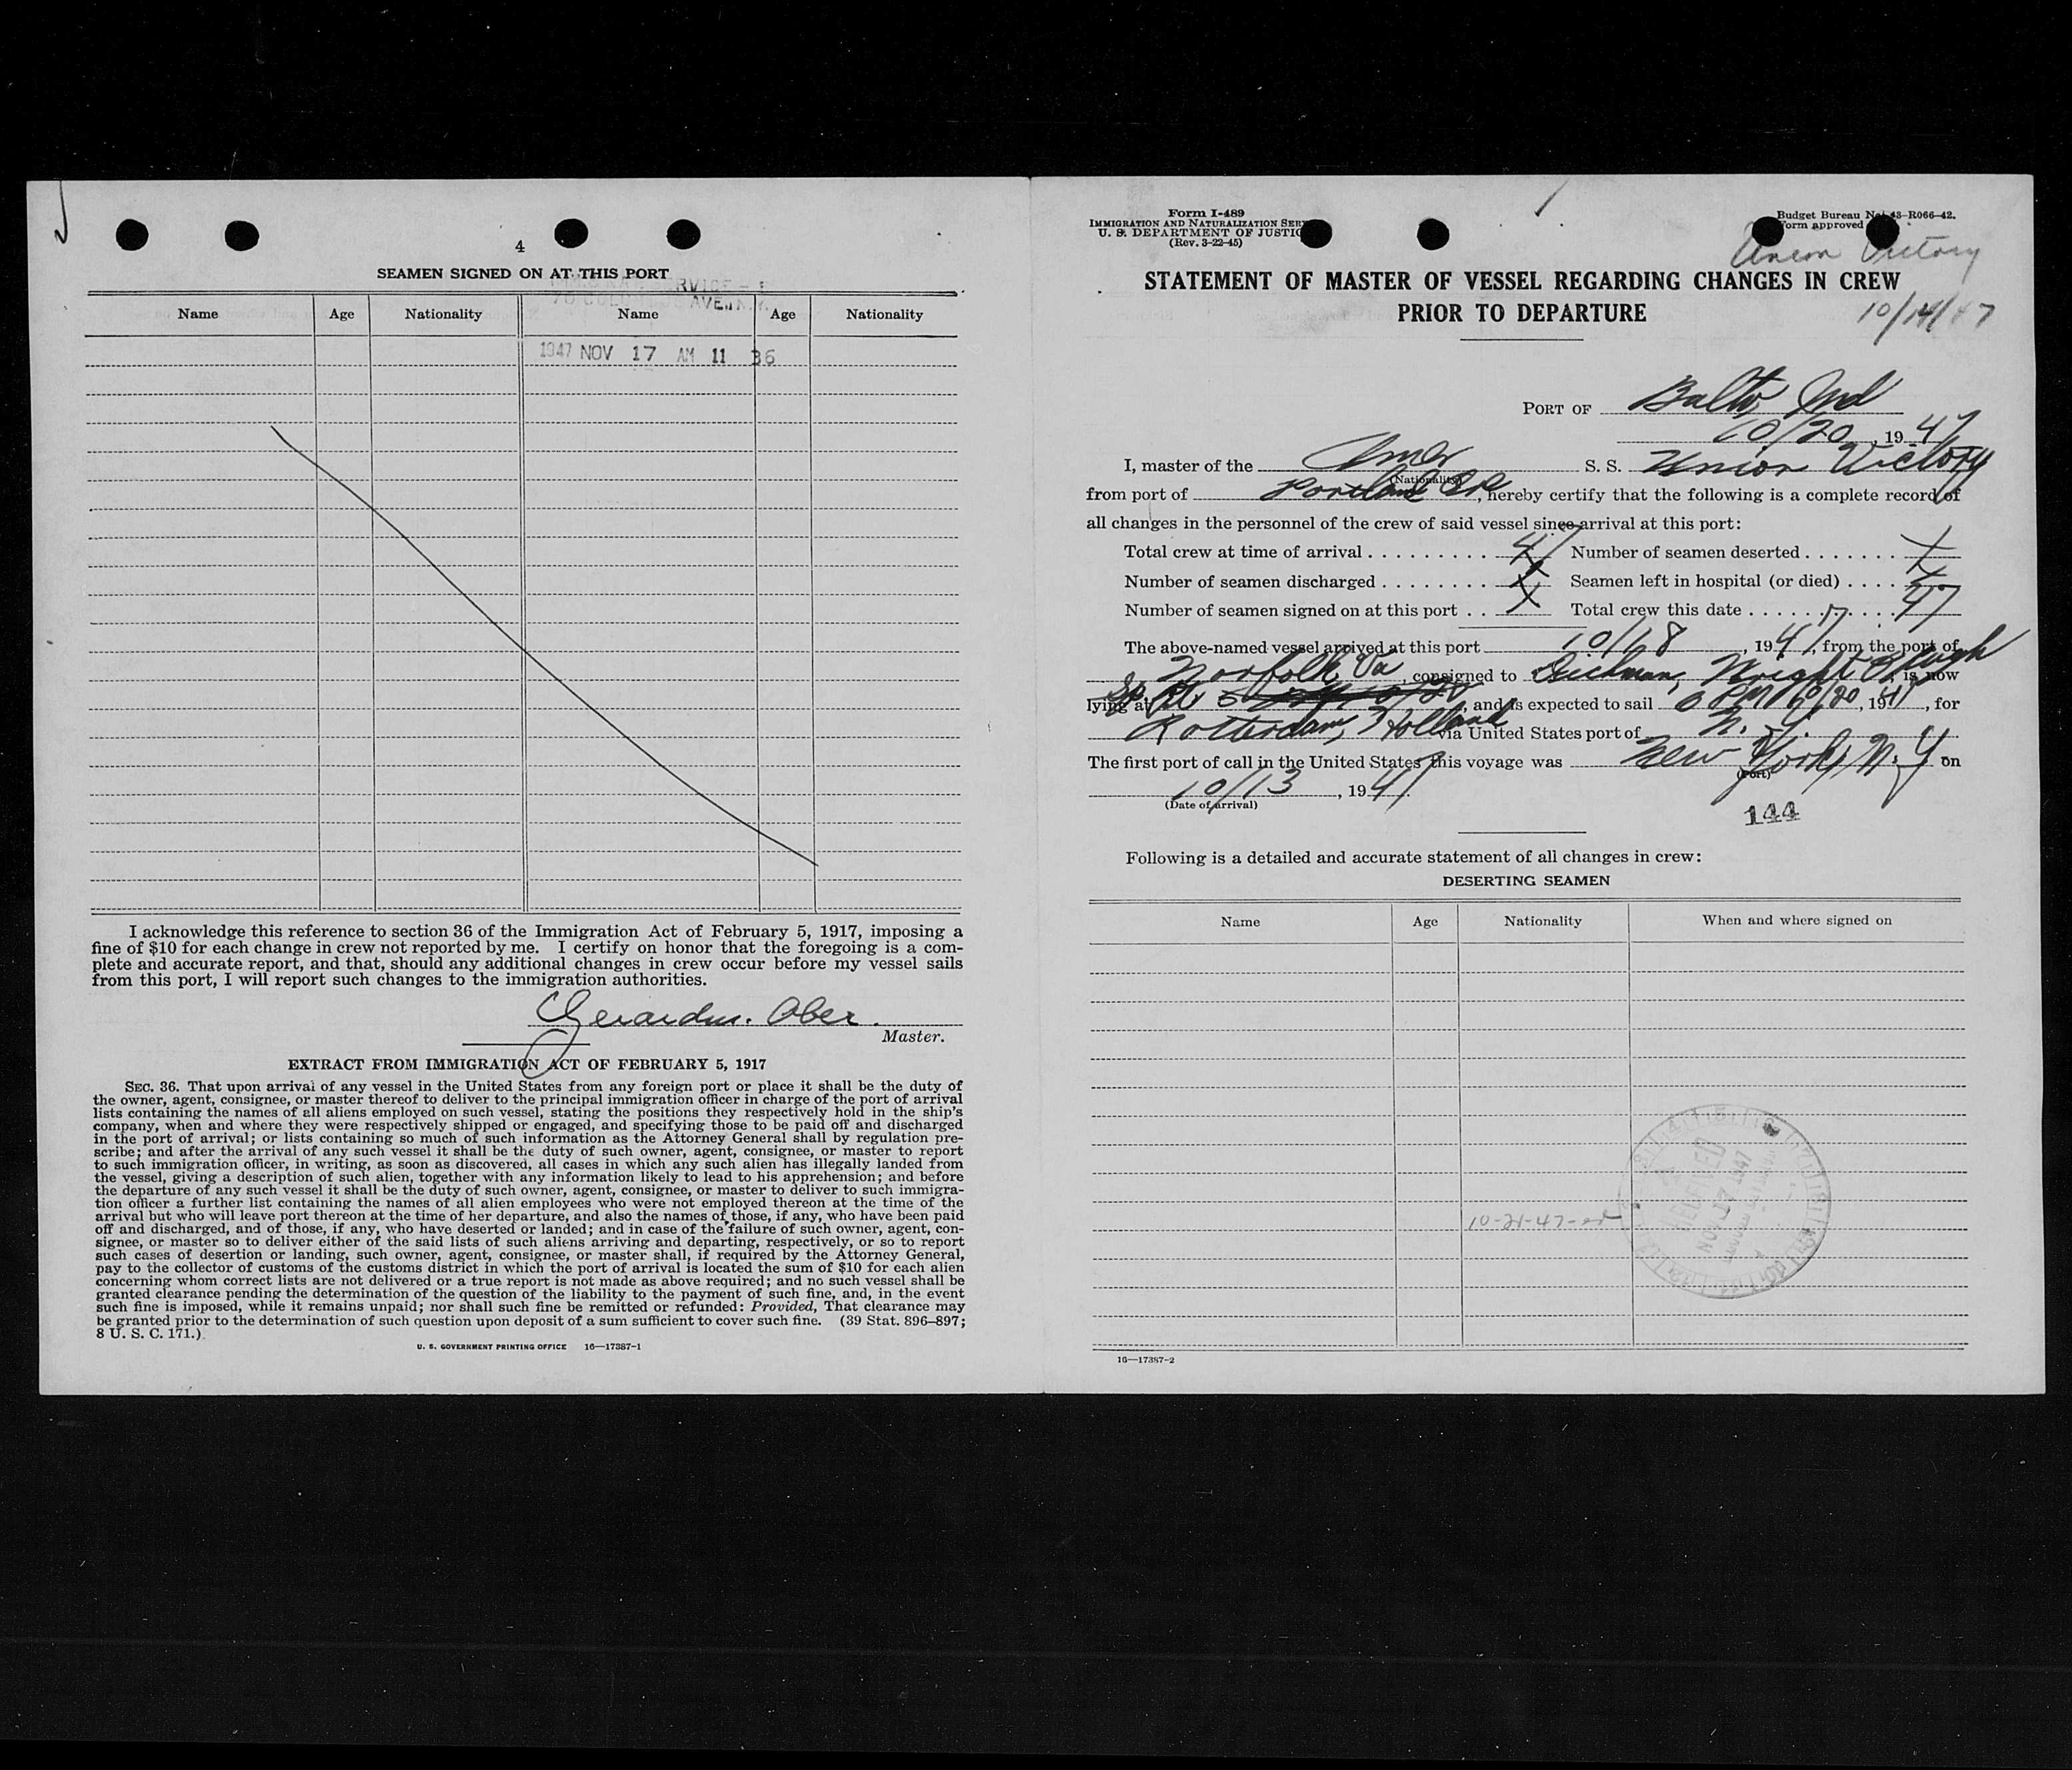 4
SEAMEN SIGNED ON AT THIS PORT
SERVICE
70 COLUMBUS AVE., N.Y.
Name Age Nationality Name Age Nationality
1947 NOV 17 AM 11 36
I acknowledge this reference to section 36 of the Immigration Act of February 5, 1917, imposing a
fine of $10 for each change in crew not reported by me. I certify on honor that the foregoing is a com-
plete and accurate report, and that, should any additional changes in crew occur before my vessel sails
from this port, I will report such changes to the immigration authorities.
Gerardus. Ober.
Master.
EXTRACT FROM IMMIGRATION ACT OF FEBRUARY 5, 1917
SEC. 36. That upon arrival of any vessel in the United States from any foreign port or place it shall be the duty of
the owner, agent, consignee, or master thereof to deliver to the principal immigration officer in charge of the port of arrival
lists containing the names of all aliens employed on such vessel, stating the positions they respectively hold in the ship's
company, when and where they were respectively shipped or engaged, and specifying those to be paid off and discharged
in the port of arrival; or lists containing so much of such information as the Attorney General shall by regulation pre-
scribe; and after the arrival of any such vessel it shall be the duty of such owner, agent, consignee, or master to report
to such immigration officer, in writing, as soon as discovered, all cases in which any such alien has illegally landed from
the vessel, giving a description of such alien, together with any information likely to lead to his apprehension; and before
the departure of any such vessel it shall be the duty of such owner, agent, consignee, or master to deliver to such immigra-
tion officer a further list containing the names of all alien employees who were not employed thereon at the time of the
arrival but who will leave port thereon at the time of her departure, and also the names of those, if any, who have been paid
off and discharged, and of those, if any, who have deserted or landed; and in case of the failure of such owner, agent, con-
signee, or master so to deliver either of the said lists of such aliens arriving and departing, respectively, or so to report
such cases of desertion or landing, such owner, agent, consignee, or master shall, if required by the Attorney General,
pay to the collector of customs of the customs district in which the port of arrival is located the sum of $10 for each alien
concerning whom correct lists are not delivered or a true report is not made as above required; and no such vessel shall be
granted clearance pending the determination of the question of the liability to the payment of such fine, and, in the event
such fine is imposed, while it remains unpaid; nor shall such fine be remitted or refunded: Provided, That clearance may
be granted prior to the determination of such question upon deposit of a sum sufficient to cover such fine. (39 Stat. 896–897;
8 U. S. C. 171.)
U. S. GOVERNMENT PRINTING OFFICE 16—17387-1
Form I-489
IMMIGRATION AND NATURALIZATION SER
U. S. DEPARTMENT OF JUSTIC
(Rev. 3-22-45)
Budget Bureau No. 43-R066-42.
Form approved
Union Victory
STATEMENT OF MASTER OF VESSEL REGARDING CHANGES IN CREW
PRIOR TO DEPARTURE
10/14/47
PORT OF Balto, Md
10/20, 1947
I, master of the Amer S. S. Union Victory
(Nationality)
from port of Portland Ore, hereby certify that the following is a complete record of
all changes in the personnel of the crew of said vessel since arrival at this port:
Total crew at time of arrival 47 Number of seamen deserted X
Number of seamen discharged X Seamen left in hospital (or died) X
Number of seamen signed on at this port X Total crew this date 47
The above-named vessel arrived at this port 10/18, 1947, from the port of
Norfolk, Va, consigned to Dichman, Wright & Pugh, is now
lying at Sp. Pt. , and is expected to sail 6 PM 10/20, 1947, for
Rotterdam, Holland via United States port of N. Y.
The first port of call in the United States this voyage was New York, N. Y on
(Port)
10/13, 1947.
(Date of arrival)
144
Following is a detailed and accurate statement of all changes in crew:
DESERTING SEAMEN
Name Age Nationality When and where signed on
RECEIVED
NOV 17 1947
10-21-47
16—17387-2